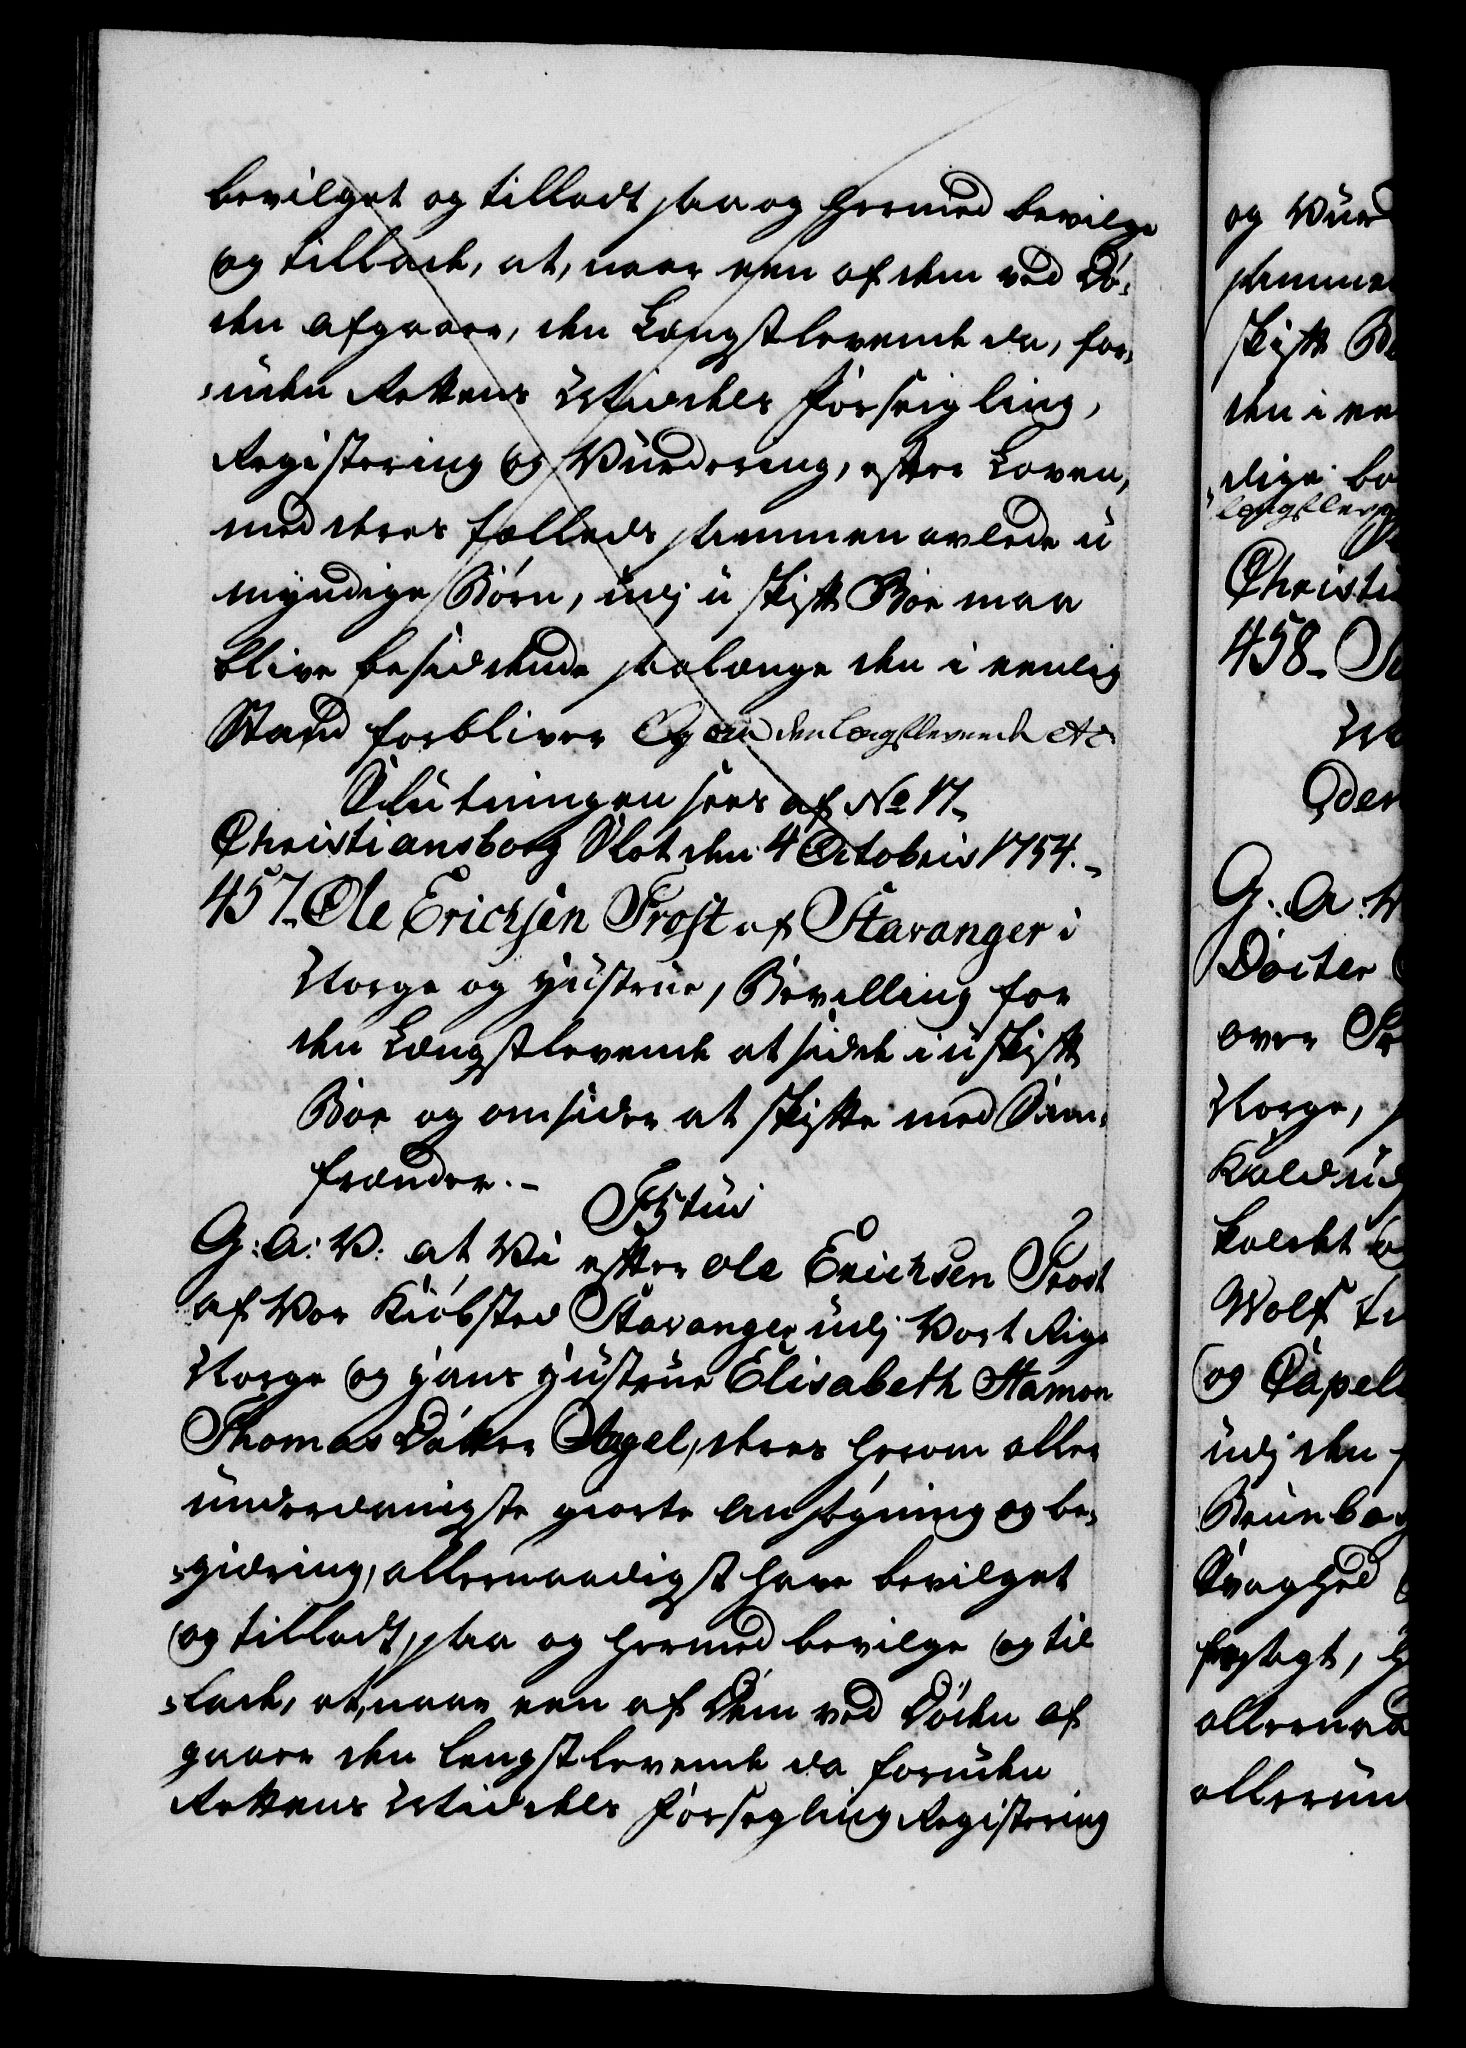 bevilget og tilladt, saa og hermed bevilge
og tillade, at, naar een af dem ved Dö-
den afgaaer, den Længstlevende da, for-
uden Rettens Middels Forseigling,
Registering og Vurdering, efter Loven,
med deres fælleds sammen avlede u
myndige Börn, udj u skifft Boe maa
blive besiddende saalænge den i eenlig
Stand forbliver Og om den længstlevende etc
Slutningen sees af No 17.
Christiansborg Slot den 4 Octobris 1754.
457. Ole Erichsen Frost af Stavanger i
Norge og Hustrue, Bevilling for
den Længstlevende at sidde i u skifft
Boe og omsider at skiffte med Sam-
frænder.
G: A: V: at Vi efter Ole Erichsen Frost
af Vor Kiöbsted Stavanger udj Vort Rige
Norge og Hans Hustrue Elisabeth
Thomas Datter deres herom aller
underdanigste giorte Ansögning og be-
giering, allernaadigst have bevilget
og tilladt, saa og hermed bevilge og til
lade, at, naar een af Dem ved Döden af
gaaer den lengstlevende da foruden
Rettens Middels Forsegling Registering
og Vur
samme
skifft Bo
den i ee
Christia
458.
Oder
G: A: V
Docter
over
Norge,
Kaldet
Wolf
og Capel
udj den
Svaghed
allernaad
allerun